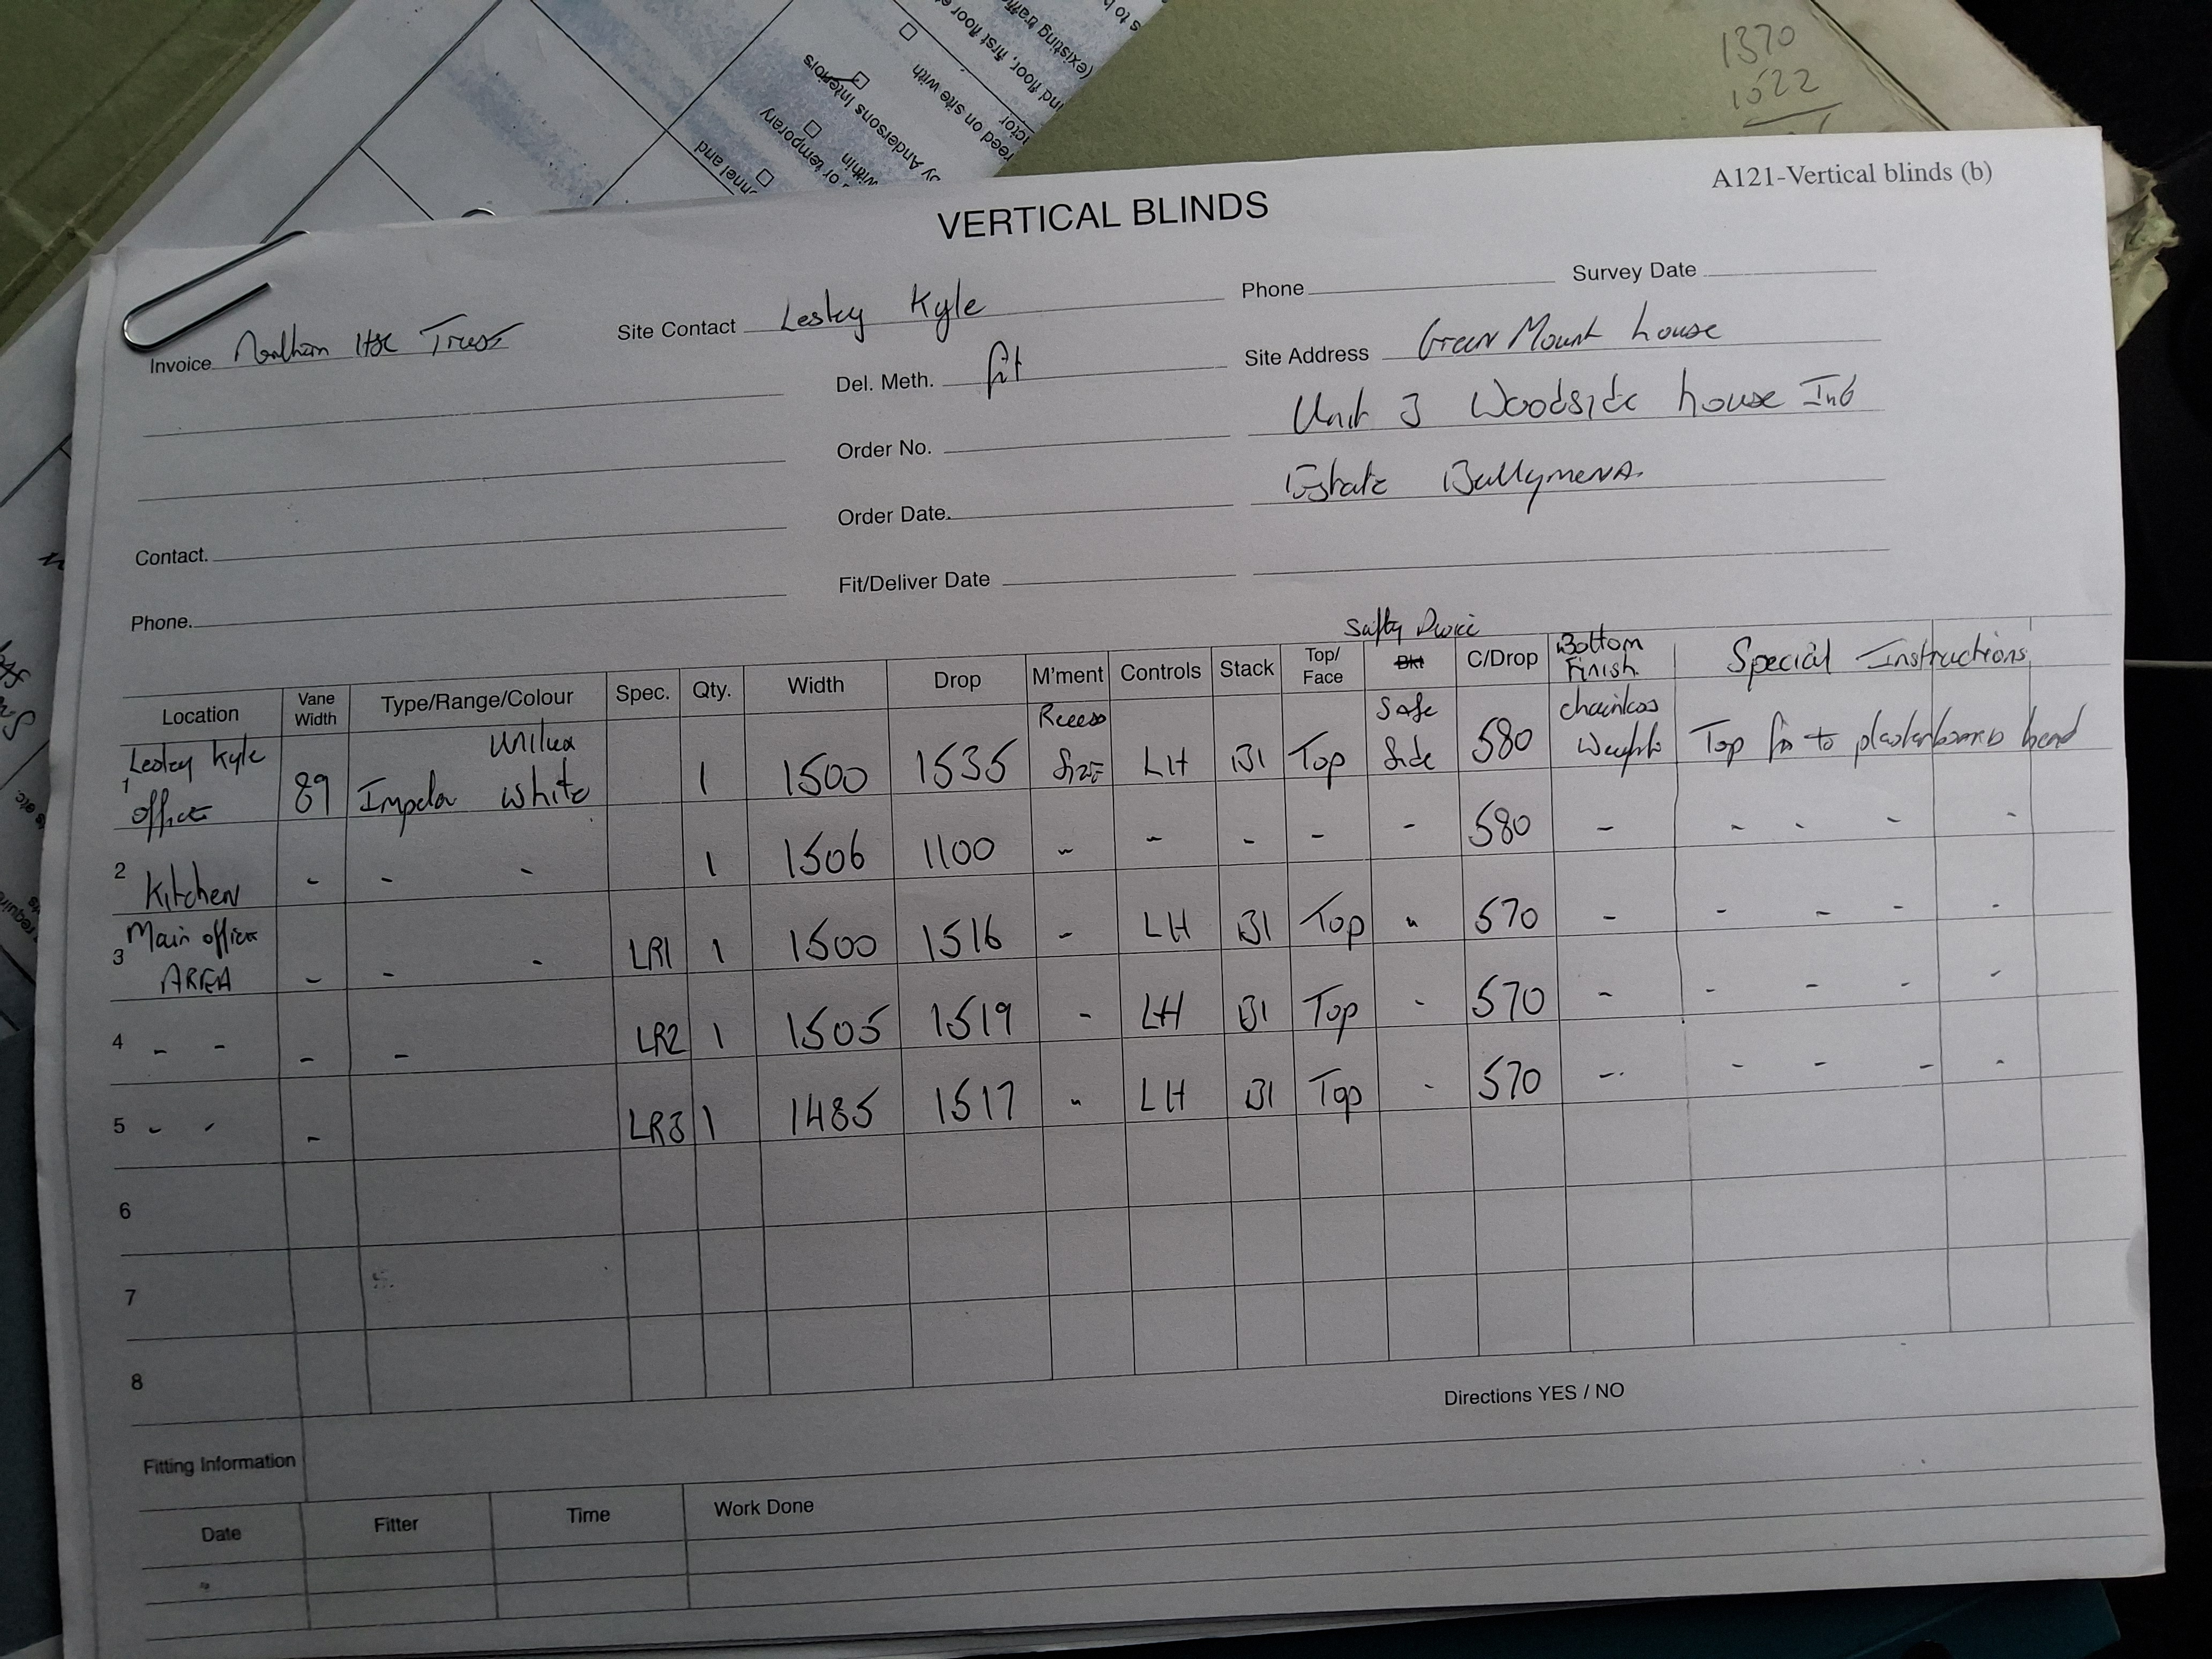 1370
1022
s to b
(existing traffi
nd floor, first floor e
ictor
reed on site with
by Andersons Interiors
within
or temporary
nnel and
A121-Vertical blinds (b)
VERTICAL BLINDS
Invoice Northern HSC Trust
Site Contact Lesley Kyle
Phone
Survey Date
Del. Meth. fit
Site Address Green Mount house
Unit 3 Woodside house Ind
Order No.
Estate Ballymena.
Order Date.
Contact.
Fit/Deliver Date
Phone.
Safty Device
Location Vane Width Type/Range/Colour Spec. Qty. Width Drop M'ment Controls Stack Top/Face Bkt C/Drop Bottom Finish. Special Instructions
1 Lesley Kyle office 89 Impela Unilux White 1 1500 1535 Recess Size LH B1 Top Safe Side 580 chainless Weights Top fix to plasterboard head
2 Kitchen - - - 1 1506 1100 - - - - - 580 - - - - -
3 Main office AREA - - - LR1 1 1500 1516 - LH B1 Top " 570 - - - - -
4 - - - - LR2 1 1505 1519 - LH B1 Top - 570 - - - - -
5 - - - LR3 1 1485 1517 " LH B1 Top - 570 - - - - -
6
7
8
Directions YES / NO
Fitting Information
Date Fitter Time Work Done